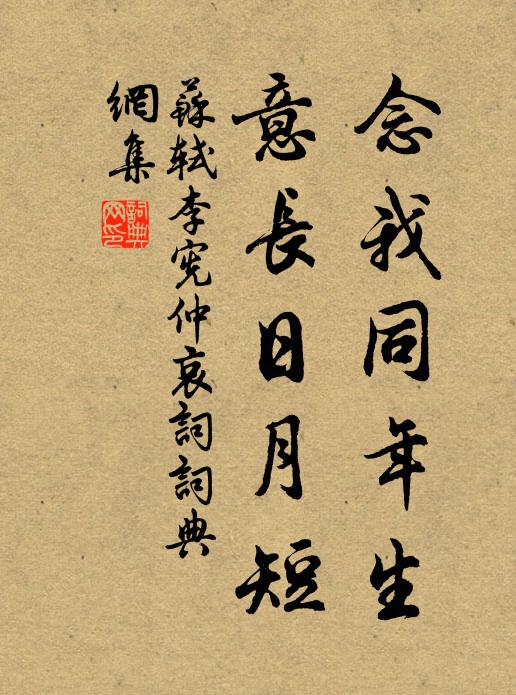 念我同年生
意長日月短
蘇軾李宪仲哀詞詞典
網集
詞典
网印